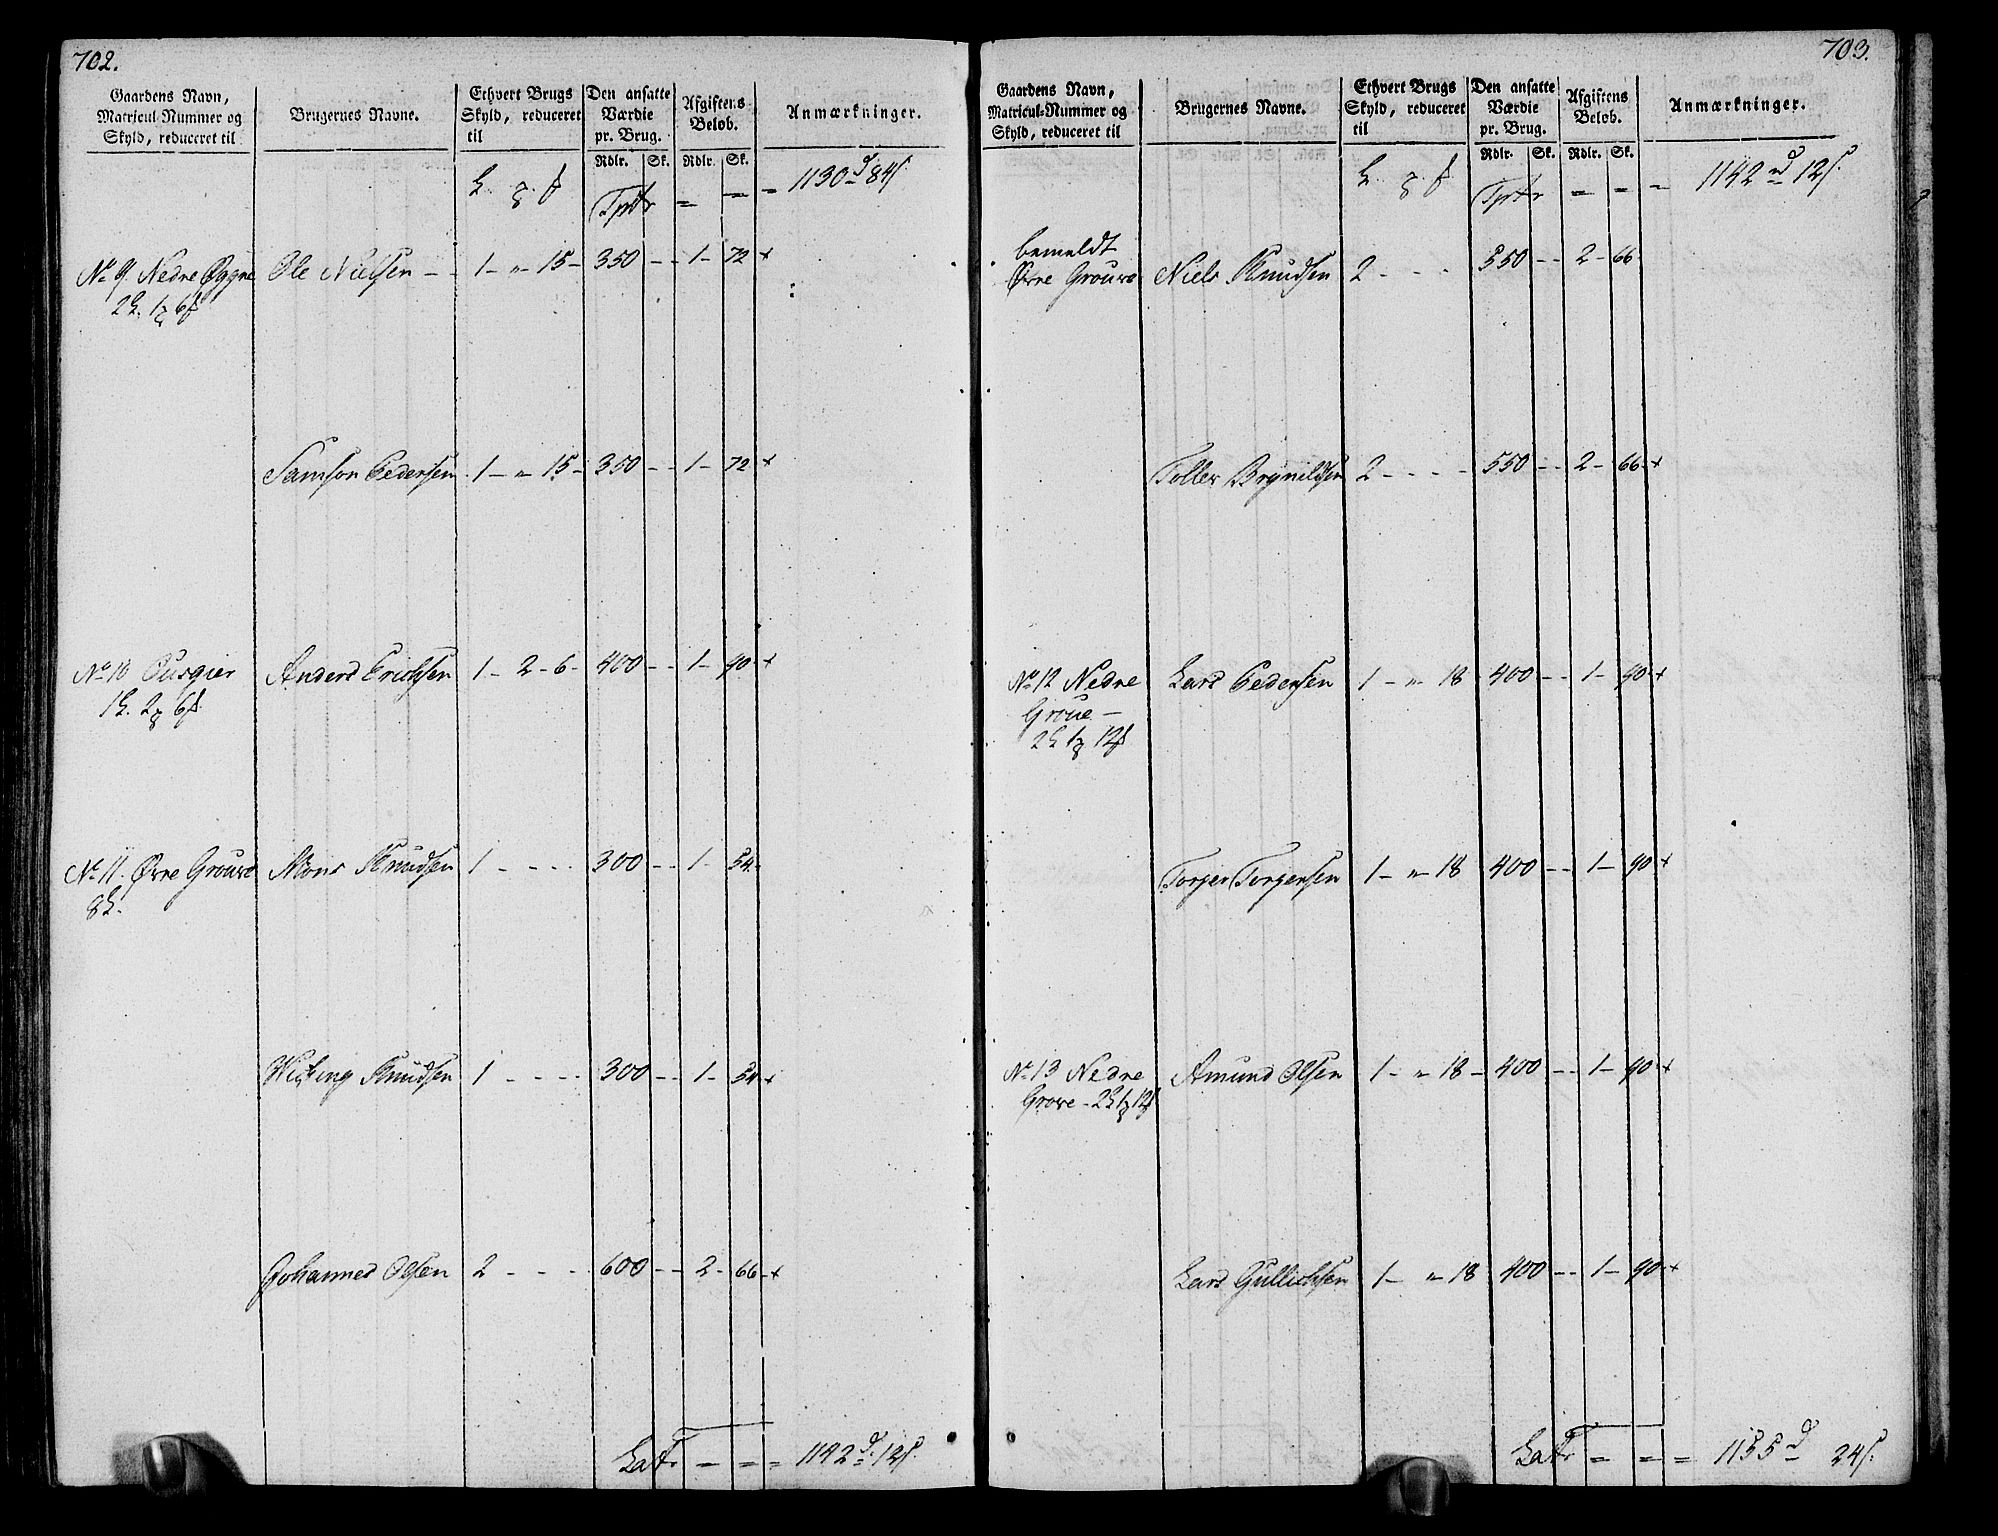 702.
Gaardens Navn, Matricul-Nummer og Skyld, reduceret til
Brugernes Navne.
Ethvert Brugs Skyld, reduceret til
Den ansatte Værdie pr. Brug.
Afgiftens Beløb.
Anmærkninger.
Rdlr. Sk. Rdlr. Sk.
Tpttr = = = 1130 d 84 s.
No 9. Nedre Øggre Ole Nielsen - - 1 - " 15 - 350 - - 1 - 72 +
Samson Pedersen 1 - " 15 - 350 - - 1 - 72 +
No 10 Anders Erichsen 1 - 2 - 6 - 400 - - 1 - 90 +
No 11. Øvre Grouve Mons Knudsen 1 - - - - 300 - - 1 - 54
Wiching Knudsen 1 - - - - 300 - - 1 - 54 +
Johannes Olsen 2 - - - 600 - - 2 - 66 +
Lattr = = = 1142 d 12 s.
703.
Gaardens Navn, Matricul-Nummer og Skyld, reduceret til
Brugernes Navne.
Ethvert Brugs Skyld, reduceret til
Den ansatte Værdie pr. Brug.
Afgiftens Beløb.
Anmærkninger.
Rdlr. Sk. Rdlr. Sk.
Tpttr = = = 1142 d 12 s.
bemeldt
Øvre Grouve Niels Knudsen 2 - - - 550 - - 2 - 66
Toller Brynildsen 2 - - - - 550 - - 2 - 66 +
No 12 Nedre Lars Pedersen 1 - " 18 - 400 - - 1 - 90 +
Groue -
Torger Torgersen 1 - " 18 - 400 - - 1 - 90 +
No 13 Nedre Amund Olsen 1 - " 18 - 400 - - 1 - 90 +
Grove -
Lars Gullichsen 1 - " 18 - 400 - - 1 - 90 +
Lattr = = = 1155 d 24 s.